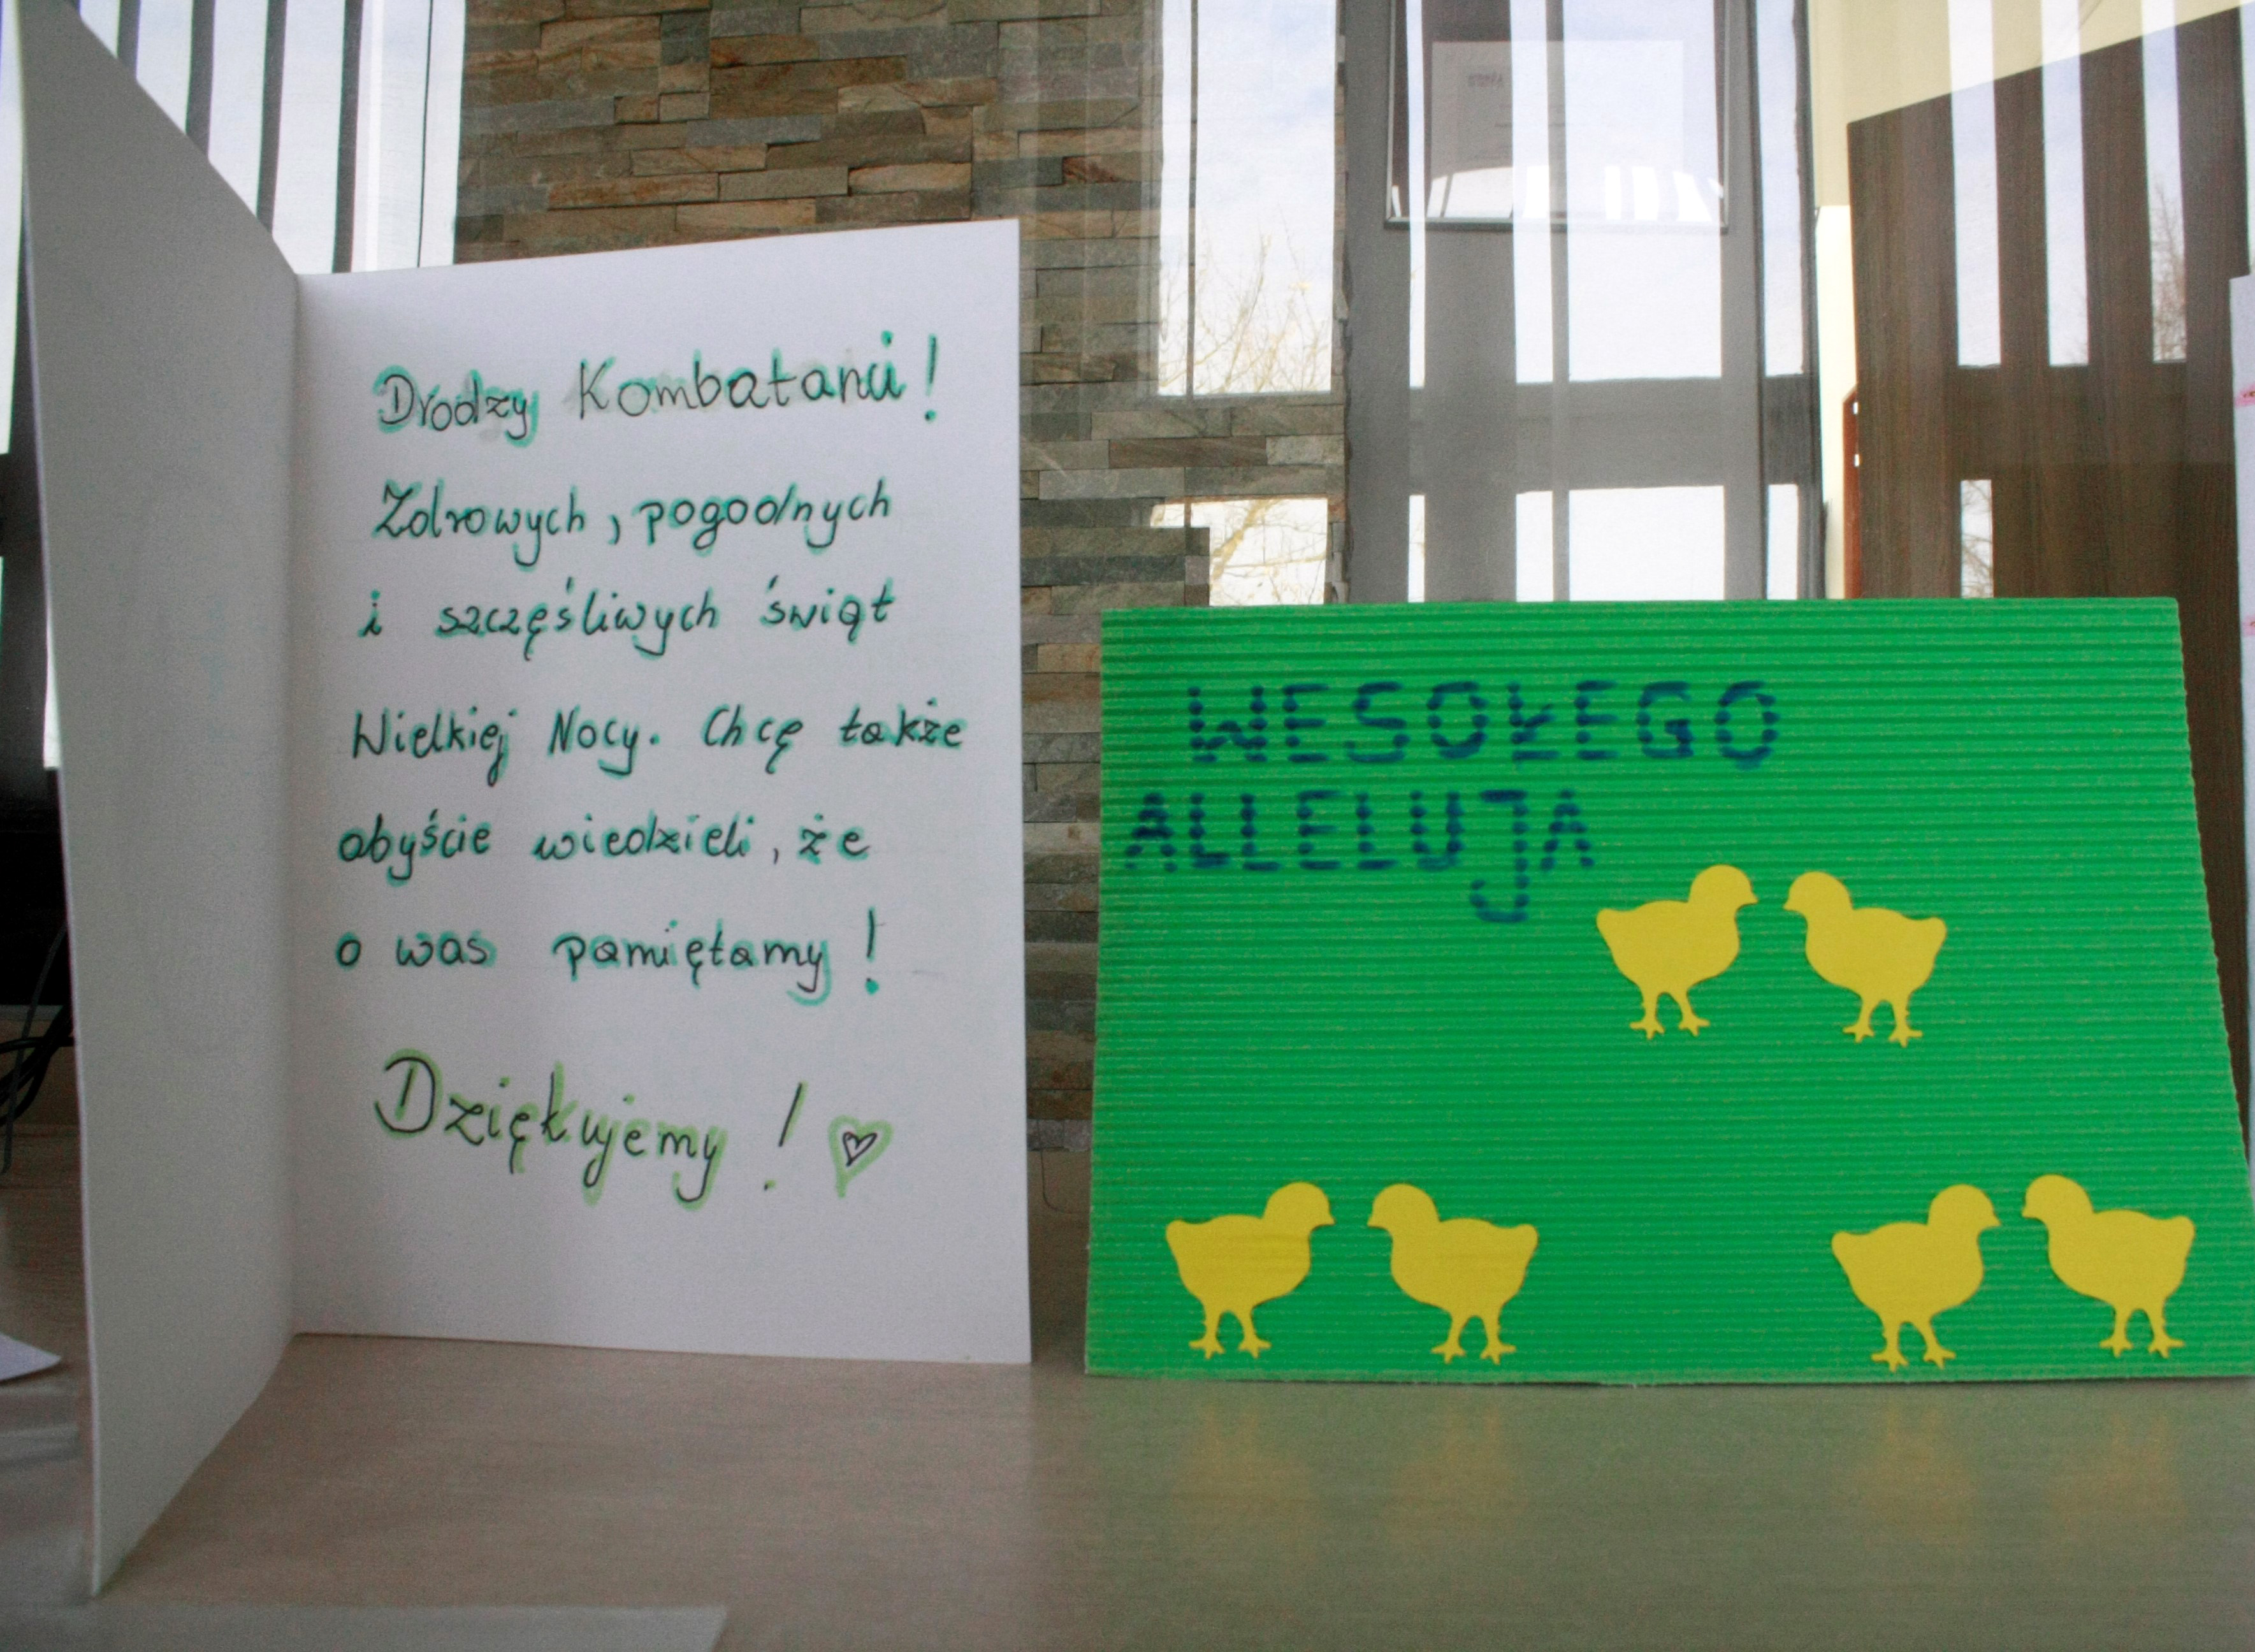 Drodzy Kombatanci!
Zdrowych, pogodnych
i szczęśliwych świąt
Wielkiej Nocy. Chcę także
abyście wiedzieli, że
o was pamiętamy!
Dziękujemy!
WESOŁEGO
ALLELUJA